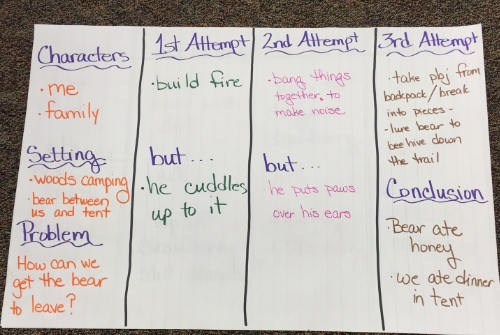 Characters
· me
· family
Setting
· woods camping
· bear between
us and tent
Problem
How can we
get the bear
to leave?
1st Attempt
· build fire
but...
· he cuddles
up to it
2nd Attempt
· bang things
together to
make noise
but...
· he puts paws
over his ears
3rd Attempt
· take pbj from
backpack/break
into pieces-
· lure bear to
bee hive down
the trail
Conclusion
· Bear ate
honey
· we ate dinner
in tent